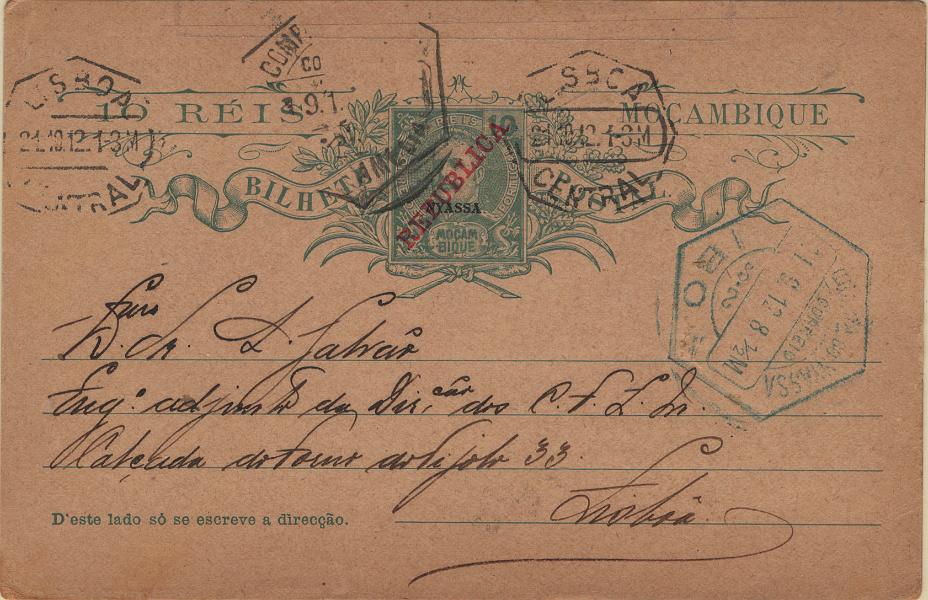 10 RÉIS
MOÇAMBIQUE
BILHETE POSTAL
LISBOA
21.10.12.1-3M
CENTRAL
COMP
CO
LISBOA
21.10.12.1-3M
CENTRAL
REIS 10
REPUBLICA
NYASSA
MOÇAM
BIQUE
IBO
9 12 8 ½M
CORREIO
NYASSA
Exmo
Snr. A. Galvão
Engo. adjunto da Dir.ção dos C. F. L. M.
Calçada do forno do tijolo 33
Lisboa
D'este lado só se escreve a direcção.